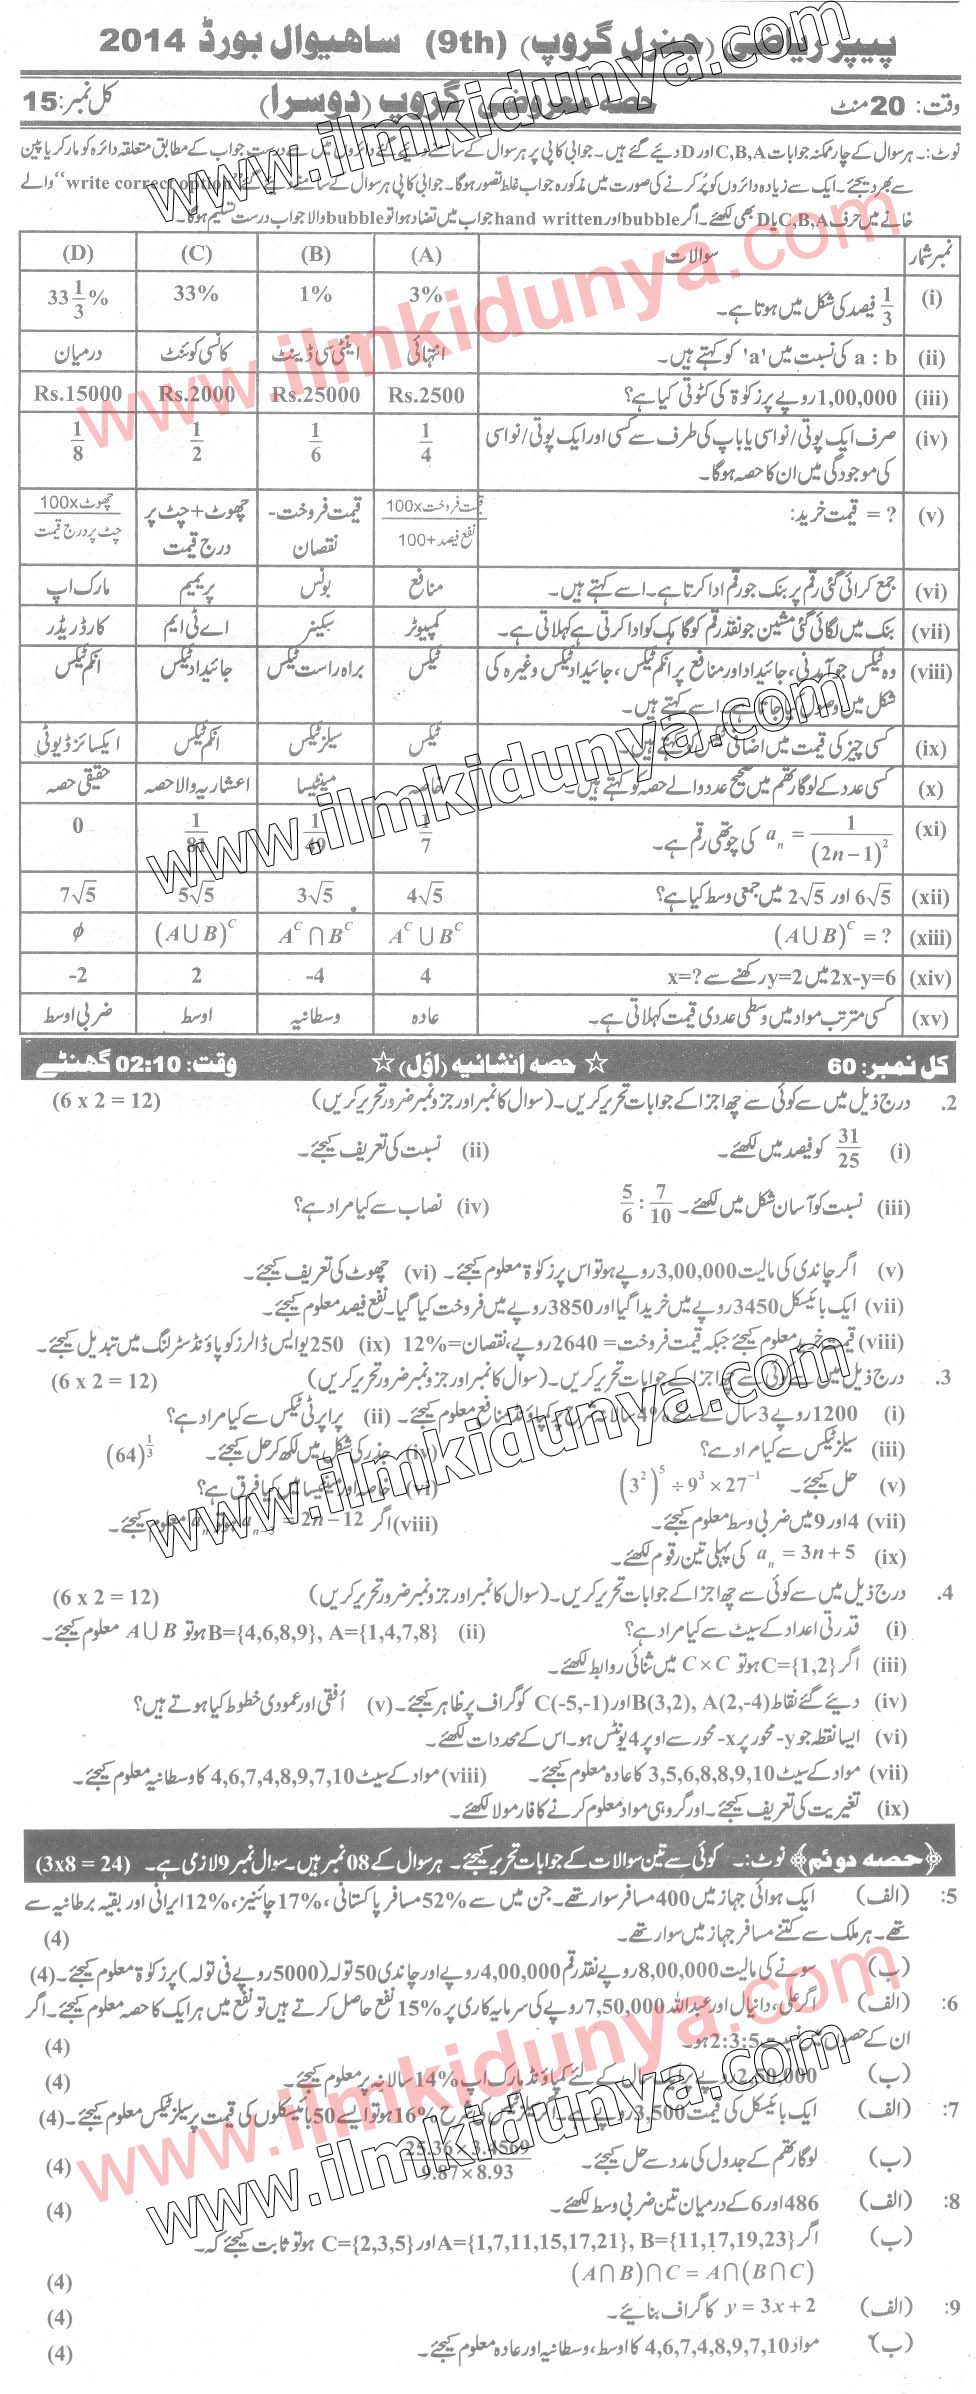 پیپر ریاضی (جنرل گروپ) (9th) ساہیوال بورڈ 2014
وقت: 20 منٹ حصہ معروضی گروپ (دوسرا) کل نمبر: 15
نوٹ:۔ ہر سوال کے چار ممکنہ جوابات C,B,A اور D دیے گئے ہیں۔ جوابی کاپی پر ہر سوال کے سامنے دیے گئے دائروں میں سے درست جواب کے مطابق متعلقہ دائرہ کو مارکر یا پین
سے بھر دیجئے۔ ایک سے زیادہ دائروں کو پُر کرنے کی صورت میں مذکورہ جواب غلط تصور ہوگا۔ جوابی کاپی پر ہر سوال کے سامنے دیے گئے "write correct option" والے
خانے میں حرف C,B,A یا D بھی لکھئے۔ اگر bubble اور hand written جواب میں تضاد ہوا تو bubble والا جواب درست تسلیم ہوگا۔
نمبر شمار سوالات (A) (B) (C) (D)
(i) 1/3 فیصد کی شکل میں ہوتا ہے۔ 3% 1% 33% 33 1/3 %
(ii) a : b کی نسبت میں 'a' کو کہتے ہیں۔ انتہائی اینٹی سی ڈینٹ کانسی کوئنٹ درمیان
(iii) 1,00,000 روپے پر زکوٰۃ کی کٹوتی کیا ہے؟ Rs.2500 Rs.25000 Rs.2000 Rs.15000
(iv) صرف ایک پوتی/نواسی یا باپ کی طرف سے کسی اور ایک پوتی/نواسی
کی موجودگی میں ان کا حصہ ہوگا۔ 1/4 1/6 1/2 1/8
(v) ? = قیمت خرید: قیمت فروخت×100 / نفع فیصد+100 قیمت فروخت- نقصان چھوٹ+چٹ پر درج قیمت چھوٹ×100 / چٹ پر درج قیمت
(vi) جمع کرائی گئی رقم پر بنک جو رقم ادا کرتا ہے۔ اسے کہتے ہیں۔ منافع بونس پریمیم مارک اپ
(vii) بنک میں لگائی گئی مشین جو نقد رقم کو گاہک کو ادا کرتی ہے کہلاتی ہے۔ کمپیوٹر سکینر اے ٹی ایم کارڈ ریڈر
(viii) وہ ٹیکس جو آمدنی، جائیداد اور منافع پر انکم ٹیکس، جائیداد ٹیکس وغیرہ کی
شکل میں وصول کیا جاتا ہے۔ اسے کہتے ہیں۔ ٹیکس براہ راست ٹیکس جائیداد ٹیکس انکم ٹیکس
(ix) کسی چیز کی قیمت میں اضافی کو کہتے ہیں۔ ٹیکس سیلز ٹیکس انکم ٹیکس ایکسائز ڈیوٹی
(x) کسی عدد کے لوگارتھم میں صحیح عدد والے حصہ کو کہتے ہیں۔ خاصہ مینٹیسا اعشاریہ والا حصہ حقیقی حصہ
(xi) aₙ = 1/(2n−1)² کی چوتھی رقم ہے۔ 1/7 1/49 1/81 0
(xii) 6√5 اور 2√5 میں جمعی وسط کیا ہے؟ 4√5 3√5 5√5 7√5
(xiii) (A∪B)^C = ? A^C ∪ B^C A^C ∩ B^C (A∪B)^C ϕ
(xiv) 2x-y=6 میں y=2 رکھنے سے x=? 4 -4 2 -2
(xv) کسی مرتب مواد میں وسطی عددی قیمت کہلاتی ہے۔ عادہ وسطانیہ اوسط ضربی اوسط
کل نمبر: 60 ☆ حصہ انشائیہ (اوّل) ☆ وقت: 02:10 گھنٹے
2. درج ذیل میں سے کوئی سے چھ اجزا کے جوابات تحریر کریں۔ (سوال کا نمبر اور جزو نمبر ضرور تحریر کریں) (6 x 2 = 12)
(i) 31/25 کو فیصد میں لکھئے۔ (ii) نسبت کی تعریف کیجئے۔
(iii) نسبت کو آسان شکل میں لکھئے۔ 5/6 : 7/10 (iv) نصاب سے کیا مراد ہے؟
(v) اگر چاندی کی مالیت 3,00,000 روپے ہو تو اس پر زکوٰۃ معلوم کیجئے۔ (vi) چھوٹ کی تعریف کیجئے۔
(vii) ایک بائیسکل 3450 روپے میں خریدا گیا اور 3850 روپے میں فروخت کیا گیا۔ نفع فیصد معلوم کیجئے۔
(viii) قیمت خرید معلوم کیجئے جبکہ قیمت فروخت= 2640 روپے، نقصان=12% (ix) 250 یو ایس ڈالرز کو پاؤنڈ سٹرلنگ میں تبدیل کیجئے۔
3. درج ذیل میں سے کوئی سے چھ اجزا کے جوابات تحریر کریں۔ (سوال کا نمبر اور جزو نمبر ضرور تحریر کریں) (6 x 2 = 12)
(i) 1200 روپے 3 سال کے لئے 4% سالانہ شرح پر کمپاؤنڈ منافع معلوم کیجئے۔ (ii) پراپرٹی ٹیکس سے کیا مراد ہے؟
(iii) سیلز ٹیکس سے کیا مراد ہے؟ (iv) جذر کی شکل میں لکھ کر حل کیجئے۔ (64)^(1/3)
(v) حل کیجئے۔ (3²)⁵ ÷ 9³ × 27⁻¹ (vi) خاصہ اور مینٹیسا میں کیا فرق ہے؟
(vii) 4 اور 9 میں ضربی وسط معلوم کیجئے۔ (viii) اگر aₙ₋₃ = 2n−12 ہو تو aₙ معلوم کیجئے۔
(ix) aₙ = 3n+5 کی پہلی تین رقوم لکھئے۔
4. درج ذیل میں سے کوئی سے چھ اجزا کے جوابات تحریر کریں۔ (سوال کا نمبر اور جزو نمبر ضرور تحریر کریں) (6 x 2 = 12)
(i) قدرتی اعداد کے سیٹ سے کیا مراد ہے؟ (ii) B={4,6,8,9}, A={1,4,7,8} ہو تو A∪B معلوم کیجئے۔
(iii) اگر C={1,2} ہو تو C×C میں ثنائی روابط لکھئے۔
(iv) دیئے گئے نقاط B(3,2), A(2,-4) اور C(-5,-1) کو گراف پر ظاہر کیجئے۔ (v) اُفقی اور عمودی خطوط کیا ہوتے ہیں؟
(vi) ایسا نقطہ جو y- محور پر x- محور سے اوپر 4 یونٹس ہو۔ اس کے محددات لکھئے۔
(vii) مواد کے سیٹ 3,5,6,8,8,9,10 کا عادہ معلوم کیجئے۔ (viii) مواد کے سیٹ 4,6,7,4,8,9,7,10 کا وسطانیہ معلوم کیجئے۔
(ix) تغیریت کی تعریف کیجئے۔ اور گروہی مواد معلوم کرنے کا فارمولا لکھئے۔
﴿حصہ دوئم﴾ نوٹ:۔ کوئی سے تین سوالات کے جوابات تحریر کیجئے۔ ہر سوال کے 08 نمبر ہیں۔ سوال نمبر 9 لازمی ہے۔ (3x8 = 24)
5: (الف) ایک ہوائی جہاز میں 400 مسافر سوار تھے۔ جن میں سے 52% مسافر پاکستانی، 17% چائنیز، 12% ایرانی اور بقیہ برطانیہ سے
تھے۔ ہر ملک سے کتنے مسافر جہاز میں سوار تھے۔ (4)
(ب) سونے کی مالیت 8,00,000 روپے نقد رقم 4,00,000 روپے اور چاندی 50 تولہ (5000 روپے فی تولہ) پر زکوٰۃ معلوم کیجئے۔ (4)
6: (الف) اگر علی، دانیال اور عبداللہ 7,50,000 روپے کی سرمایہ کاری پر 15% نفع حاصل کرتے ہیں تو نفع میں ہر ایک کا حصہ معلوم کیجئے۔ اگر
ان کے حصوں میں نسبت 2:3:5 ہو۔ (4)
(ب) 2,50,000 روپے پر سال کے لئے کمپاؤنڈ مارک اپ 14% سالانہ پر معلوم کیجئے۔ (4)
7: (الف) ایک بائیسکل کی قیمت 3,500 روپے ہے۔ اگر سیلز ٹیکس کی شرح 16% ہو تو ایسے 50 بائیسکلوں کی قیمت پر سیلز ٹیکس معلوم کیجئے۔ (4)
(ب) لوگارتھم کے جدول کی مدد سے حل کیجئے۔ 25.36×3.4569 / 9.87×8.93 (4)
8: (الف) 486 اور 6 کے درمیان تین ضربی وسط لکھئے۔ (4)
(ب) اگر A={1,7,11,15,17,21}, B={11,17,19,23} اور C={2,3,5} ہو تو ثابت کیجئے کہ۔
(A∩B)∩C = A∩(B∩C) (4)
9: (الف) y = 3x+2 کا گراف بنائیے۔ (4)
(ب) مواد 4,6,7,4,8,9,7,10 کا اوسط، وسطانیہ اور عادہ معلوم کیجئے۔ (4)
www.ilmkidunya.com
www.ilmkidunya.com
www.ilmkidunya.com
www.ilmkidunya.com
www.ilmkidunya.com
www.ilmkidunya.com